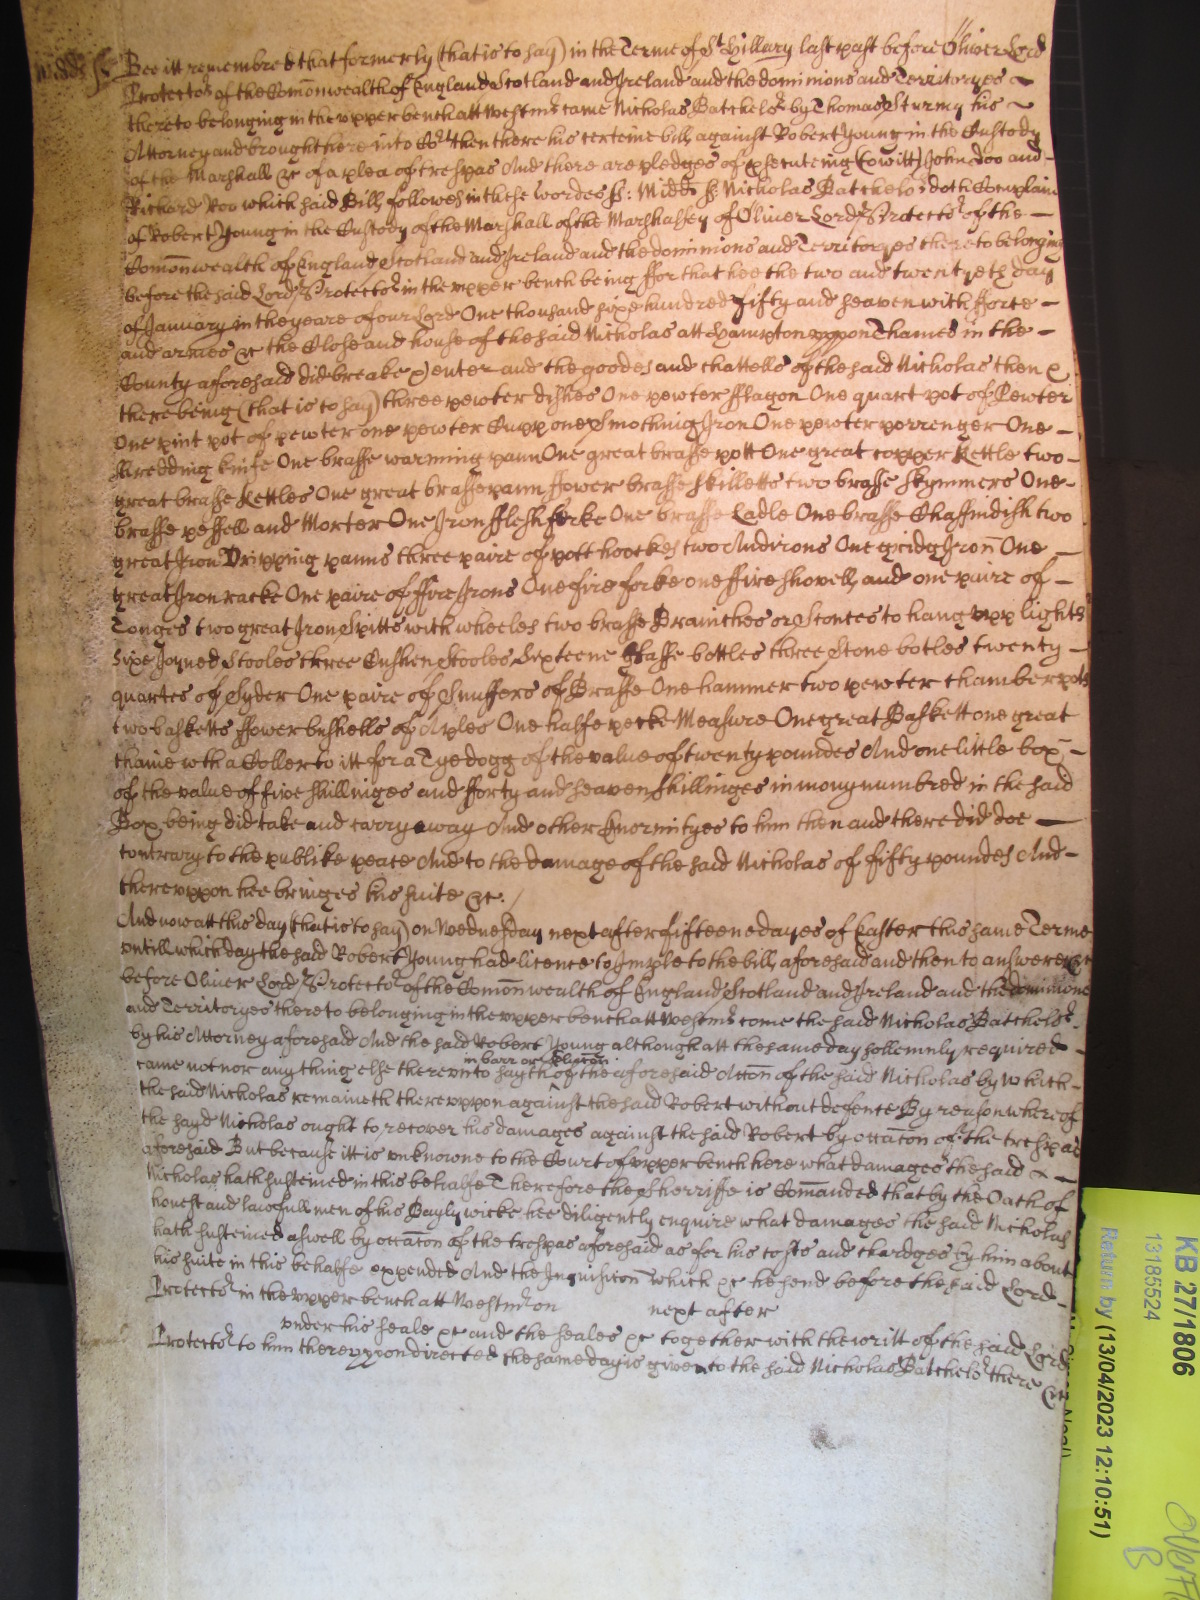 Midds ss Bee itt remembred that formerly (that is to say) in the Terme of St Hillary last past before Oliver Lord
Protector of the Comonwealth of England Scotland and Ireland and the dominions and Territoryes
thereto belonging in the upper bench att Westmr came Nicholas Batchelor by Thomas Sturmy his
Attorney and brought here into Cort then there his certeine bill against Robert Young in the Custody
of the Marshall &c of a plea of trespas And there are pledges of psecuteing (towitt) John Doo and
Richard Roo which said Bill followes in these wordes ss: Midds ss: Nicholas Batchelor doth Complain
of Robert Young in the Custody of the Marshall of the Marshalsey of Oliver Lord Protector of the
Comonwealth of England Scotland and Ireland and the dominions and Territoryes thereto belonging
before the said Lord Protector in the upper bench being ffor that hee the two and twentyeth day
of January in the yeare of our Lord One thousand sixe hundred fifty and seaven with fforce
and armes &c the Close and house of the said Nicholas att Hampton uppon Thames in the
County aforesaid did breake & enter and the goodes and chattells of the said Nicholas then &
there being (that is to say) three pewter dishes One pewter fflagon One quart pot of Pewter
One pint pot of pewter one pewter Cupp one Smothing Iron One pewter porrenger One
Shredding knife One brasse warming pann One great brasse pott One great copper Kettle two
great brasse Kettles One great brasse pann ffower brasse Skilletts two brasse Skymmers One
brasse pessell and Morter One Iron fflesh forke One brasse Ladle One brasse Chaffindish two
great Iron Dripping panns three paire of pott hoockes two Andirons One gridg Iron One
great Iron racke One paire of ffire Irons One fire forke one ffire shovell and one paire of
Tonges two great Iron Spitts with wheeles two brasse Brainches or Sconces to hang upp lights
Sixe Joyned Stooles three Cushen Stooles Sixteene glasse bottles three Stone botles twenty
quartes of Syder One paire of Snuffers of Brasse One hammer two pewter chamberpots
two basketts ffower bushells of Aples One halfe pecke Measure One great Baskett one great
chaine with a Coller to itt for a Tyedogg of the value of twenty poundes And one little box
of the value of five shillinges and fforty and seaven shillinges in mony numbred in the said
Box being did take and carry away And other Enormityes to him then and there did doe
contrary to the publike peace And to the damage of the said Nicholas of fifty poundes And
thereuppon hee bringes his suite &c:
And now att this day (that is to say) on Wednesday next after fifteene dayes of Easter this same Terme
untill which day the said Robert Young had licence to Imple to the bill aforesaid and then to answere &c
before Oliver Lord Protector of the Comonwealth of England Scotland and Ireland and the dominions
and Territoryes thereto belonging in the upper bench att Westmr come the said Nicholas Batchelor
by his Attorney aforesaid And the said Robert Young although att the same day sollemnly required
in barr or
came not nor any thing else thereunto sayth of the aforesaid Accon of the said Nicholas by which
the said Nicholas remaineth thereuppon against the said Robert without defence By reason whereof
the sayd Nicholas ought to recover his damages against the said Robert by occacon of the trespas
aforesaid But because itt is unknowne to the Court of upper bench here what damages the said
Nicholas hath susteined in this behalfe Therefore the Sherriffe is Comanded that by the Oath of
honest and lawfull men of his Baylywicke hee diligently enquire what damages the said Nicholas
hath susteined aswell by occacon of the trespas aforesaid as for his costs and chardges by him about
his suite in this behalfe expended And the Inquisicon which &c he send before the said Lord
Protector in the upper bench att Westmr on next after
under his seale &c and the seales &c together with the writt of the said Lord
Protector to him thereuppon directed the same day is given to the said Nicholas Batchelor there &c
KB 27/1806
13185524
Return by (13/04/2023 12:10:51)